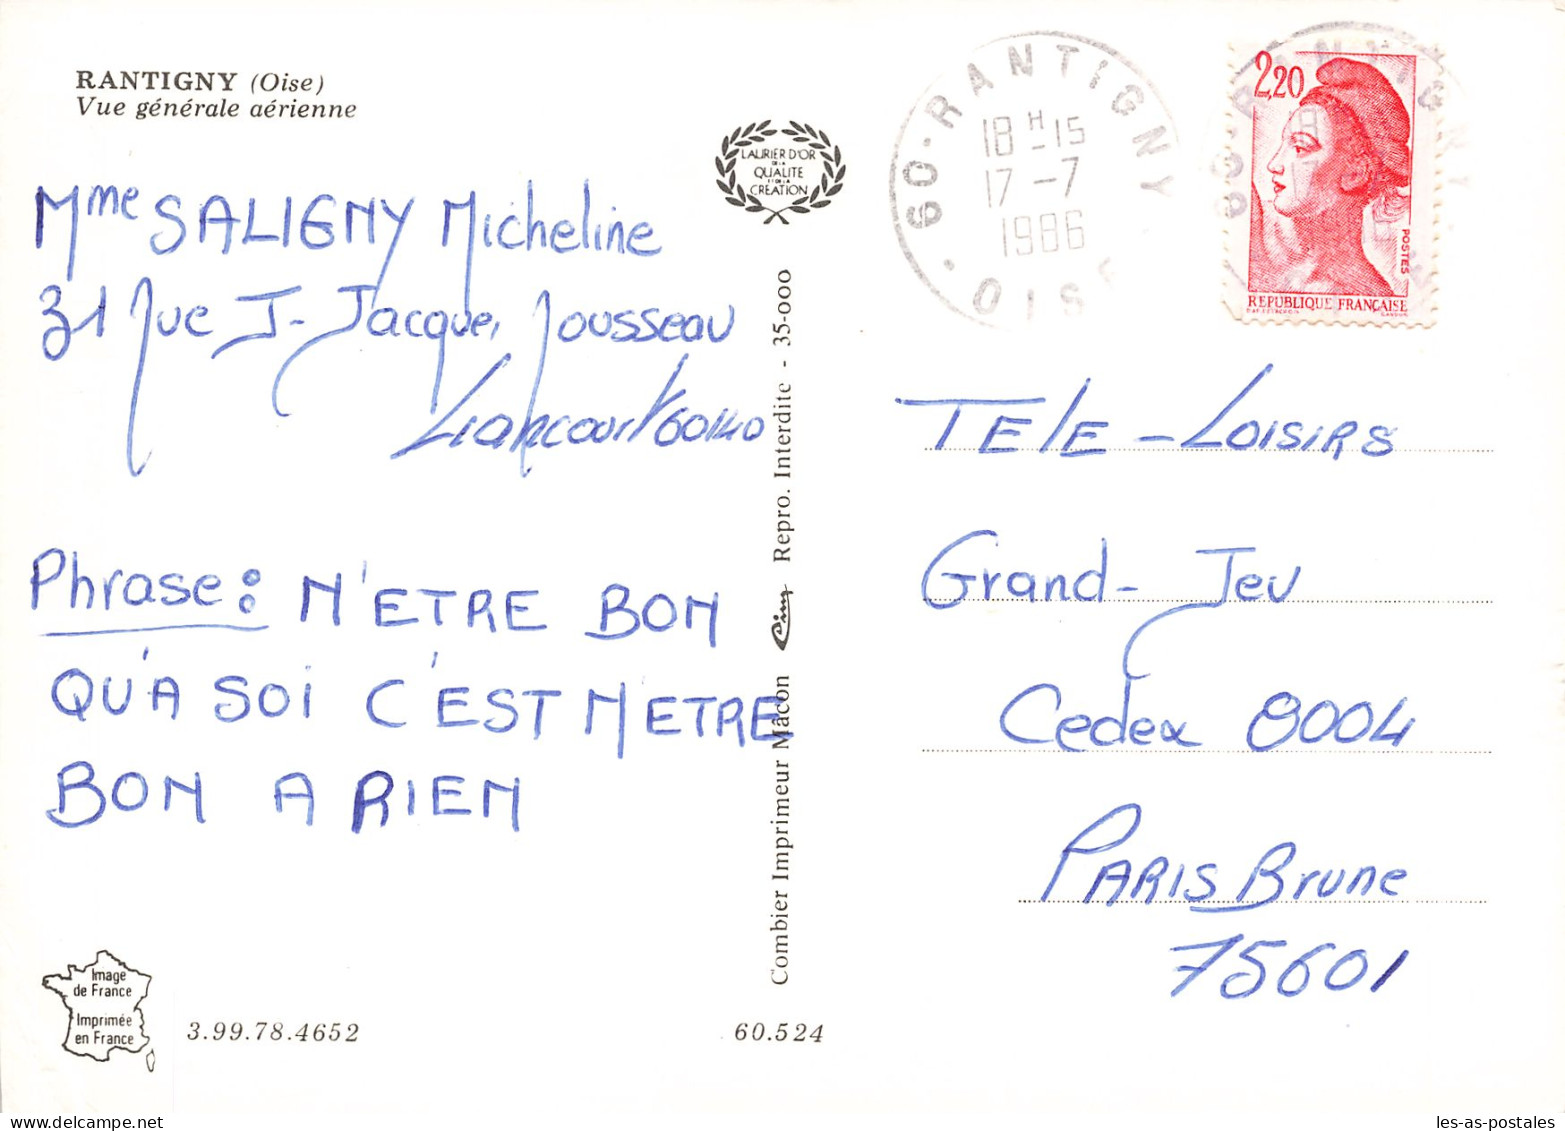 RANTIGNY (Oise)
Vue générale aérienne
LAURIER D'OR
DE LA
QUALITE
ET DE LA
CREATION
60 · RANTIGNY
18 H -15
17 -7
1986
· OISE
2,20
POSTES
REPUBLIQUE FRANÇAISE
Mme SALIGNY Micheline
31 rue J-Jacques Rousseau
Liancourt 60140
Phrase: N'ETRE BON
QU'A SOI C'EST N'ETRE
BON A RIEN
Combier Imprimeur Mâcon Cim Repro. Interdite - 35-000
TELE-LOISIRS
Grand-Jeu
Cedex 8004
PARIS Brune
75601
Image
de France
Imprimée
en France
3.99.78.4652
60.524
les-as-postales